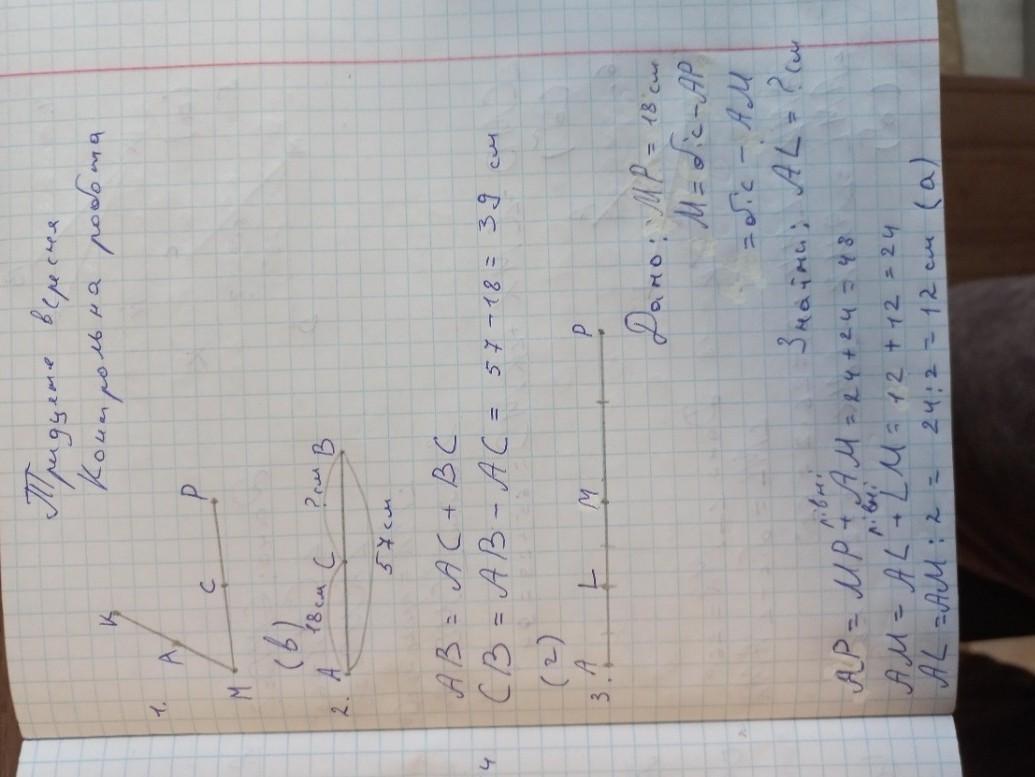 Тридцяте вересня
Контрольна робота
1.
K
A
M
C
P
(в)
2. A 18 см C ? см B
57 см
AB = AC + BC
CB = AB - AC = 57 - 18 = 39 см
(г)
3. A L M P
Дано: MP = 18 см
M = біс - AP
= біс - AM
Знайти; AL = ? см
AP = MP + AM = 24 + 24 = 48
рівні
AM = AL + LM = 12 + 12 = 24
рівні
AL = AM : 2 = 24 : 2 = 12 см (а)
4